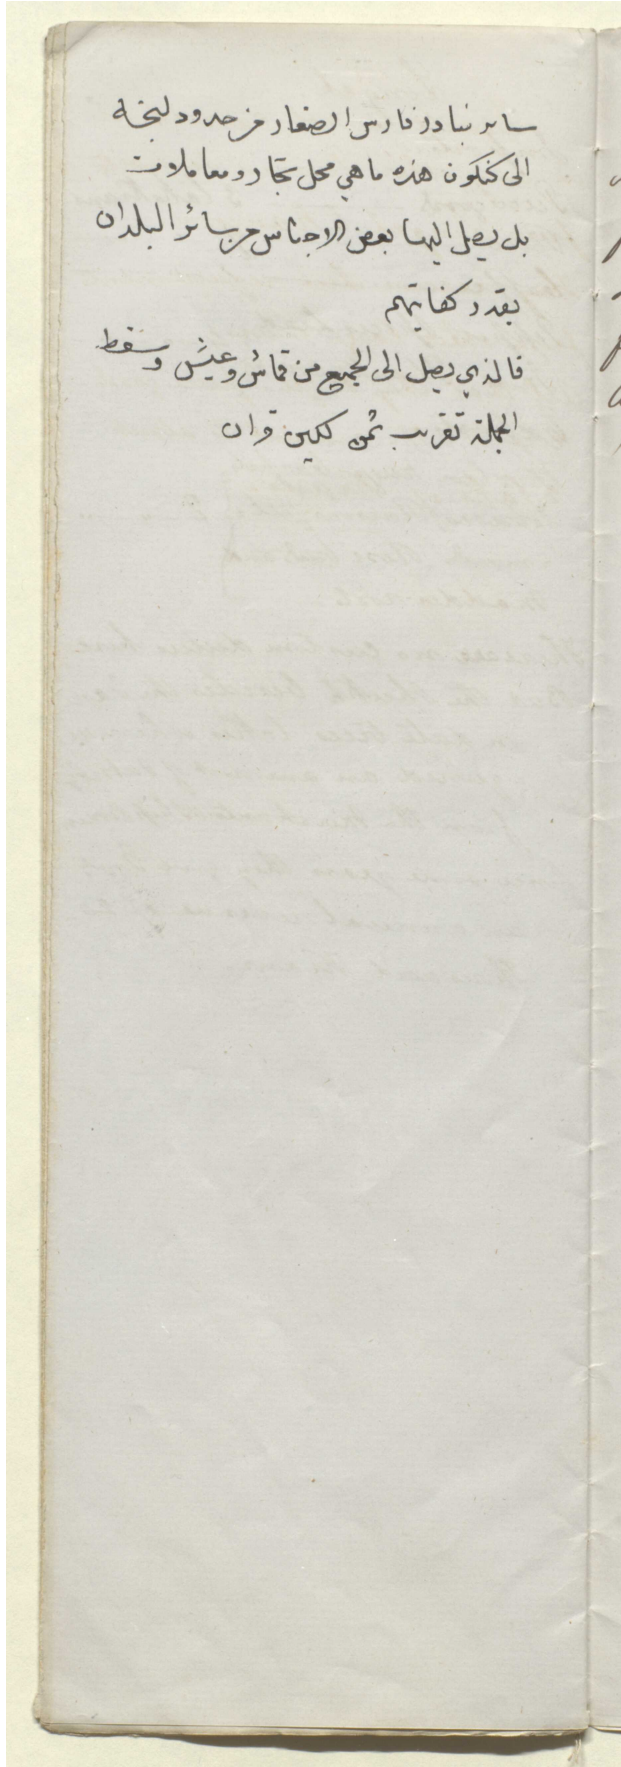 ساير بنادر فارس الصغار من حدود لنجة
الى كنكون هذه ما هي محل تجار ومعاملات
بل يصل اليها بعض الاجناس من سائر البلدان
بقدر كفايتهم
فالذي يصل الى الجميع من قماش وعيش وسقط
الجملة تقريب ثمن لكين قران